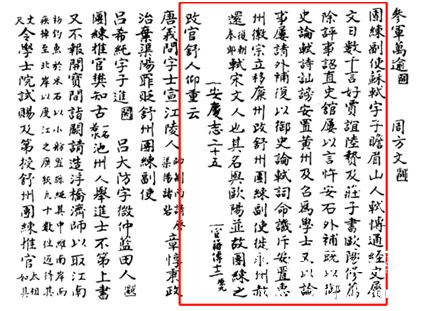 參軍萬逾圖 周方文
團練副使蘇軾字子瞻眉山人軾博通經史屬
文日數千言好賈誼陸贄及莊子書歐陽修
除評事認直史館屢以言忤安石外補既以御
史論軾詩訕謗安置黃州及召爲學士又以論
事屢請外補復以御史論軾詞命譏斥安置惠
州徽宗立移廉州改舒州團練副使徙永州赦
還復朝奉郎軾宋文人也其名與歐陽並故團練之
安慶志二十五
改官舒人仰重云
唐義問字士宣江陵人 章惇秉政
治棄渠陽罪貶舒州團練副使
呂希純字子進 圖 呂大防字微仲藍田人
團練推官樊知古 池州人舉進士不第上書
又不報開寶間詣闕請造浮橋濟師以取江南
令學士院試賜及第授舒州團練推官